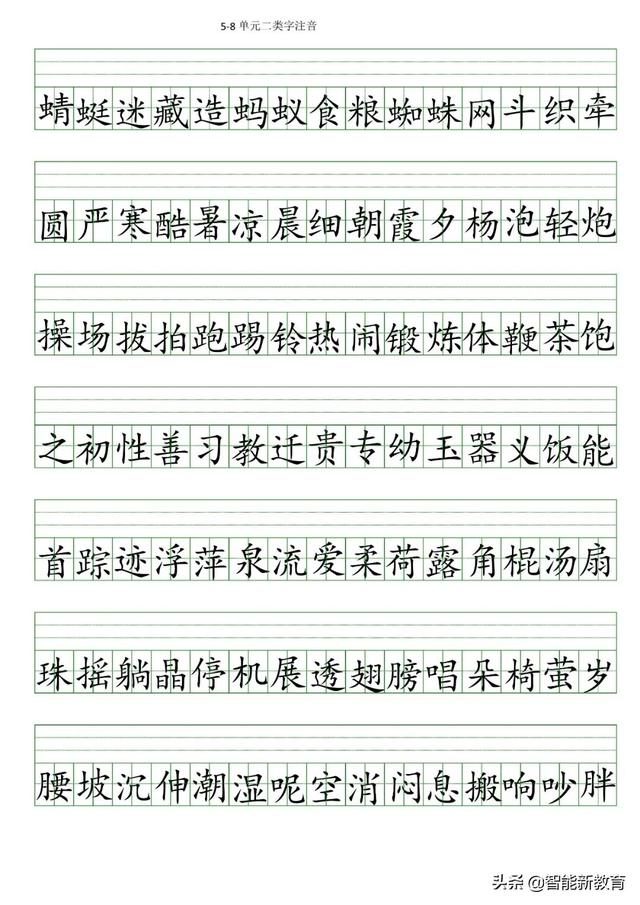 5-8 单元二类字注音
蜻蜓迷藏造蚂蚁食粮蜘蛛网斗织牵
圆严寒酷暑凉晨细朝霞夕杨泡轻炮
操场拔拍跑踢铃热闹锻炼体鞭茶饱
之初性善习教迁贵专幼玉器义饭能
首踪迹浮萍泉流爱柔荷露角棍汤扇
珠摇躺晶停机展透翅膀唱朵椅萤岁
腰坡沉伸潮湿呢空消闷息搬响吵胖
头条 @智能新教育